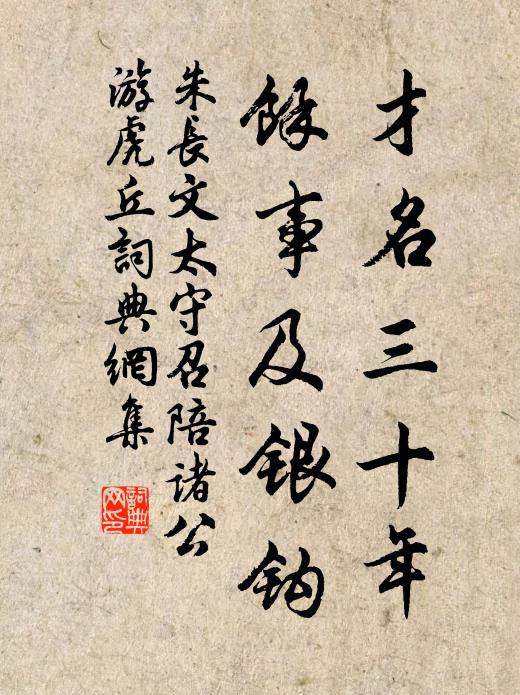 才名三十年
餘事及銀鈎
朱長文太守召陪諸公
游虎丘詞典網集
詞典网印